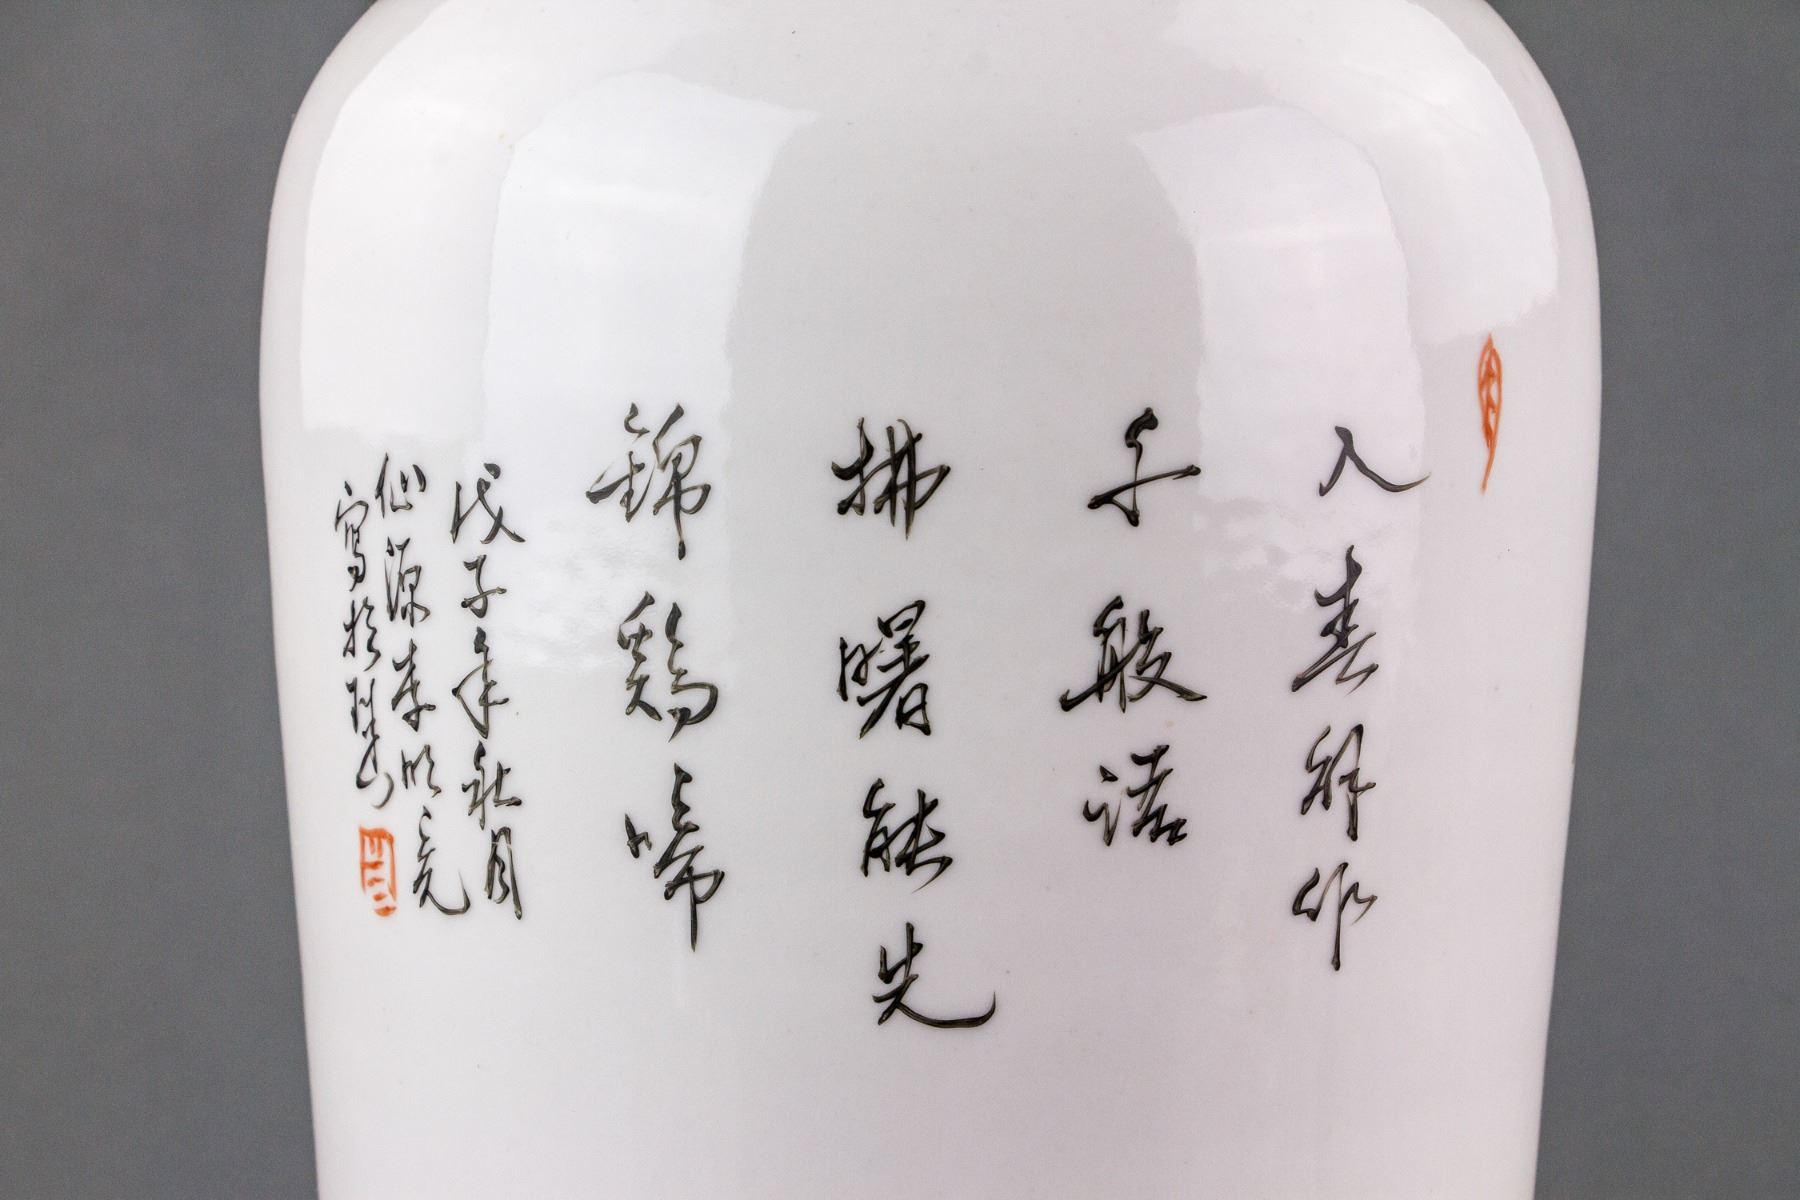 入春解作
千般語
拂曙能先
錦鷄啼
戊子年秋月
仙源李明亮
寫於珠山